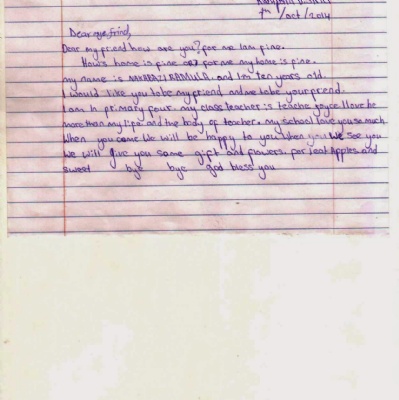 7th/oct/2014
Dear my friend how are you? for me Iam fine.
How's home is fine or? for me my home is fine.
my name is RADMULA. and I'm ten years old.
I would like you to be my friend and me to be your friend.
I am in primary four. my class teacher is teache joyce I love he
more than my life and the body of teacher. my school love you so much
When you come We will be happy to you when you We see you
We will give you some gift and flowers. Apples and
sweet bye bye god bless you